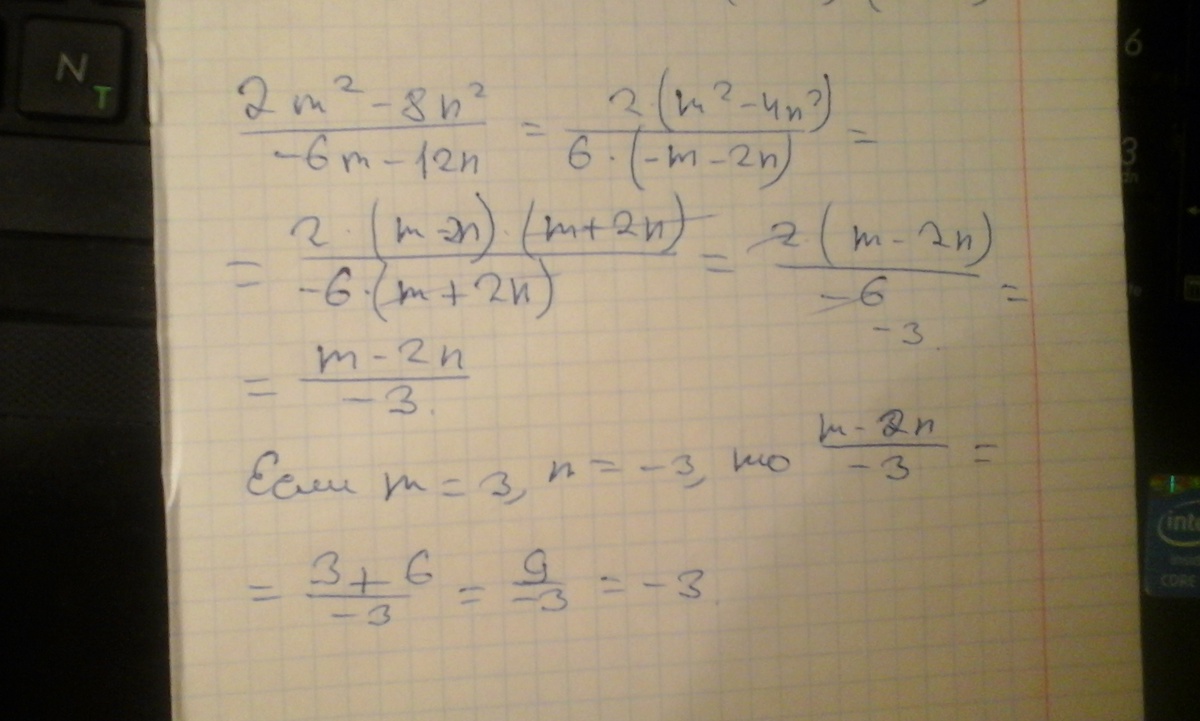 N
T
6
3
(2m² - 8n²)/(-6m - 12n) = (2·(m² - 4n²))/(6·(-m - 2n)) =
= (2·(m-2n)·(m+2n))/(-6·(m+2n)) = (2(m - 2n))/(-6) =
-3.
= (m - 2n)/(-3.)
Если m = 3, n = -3, то (m - 2n)/(-3) =
= (3+6)/(-3) = 9/(-3) = -3